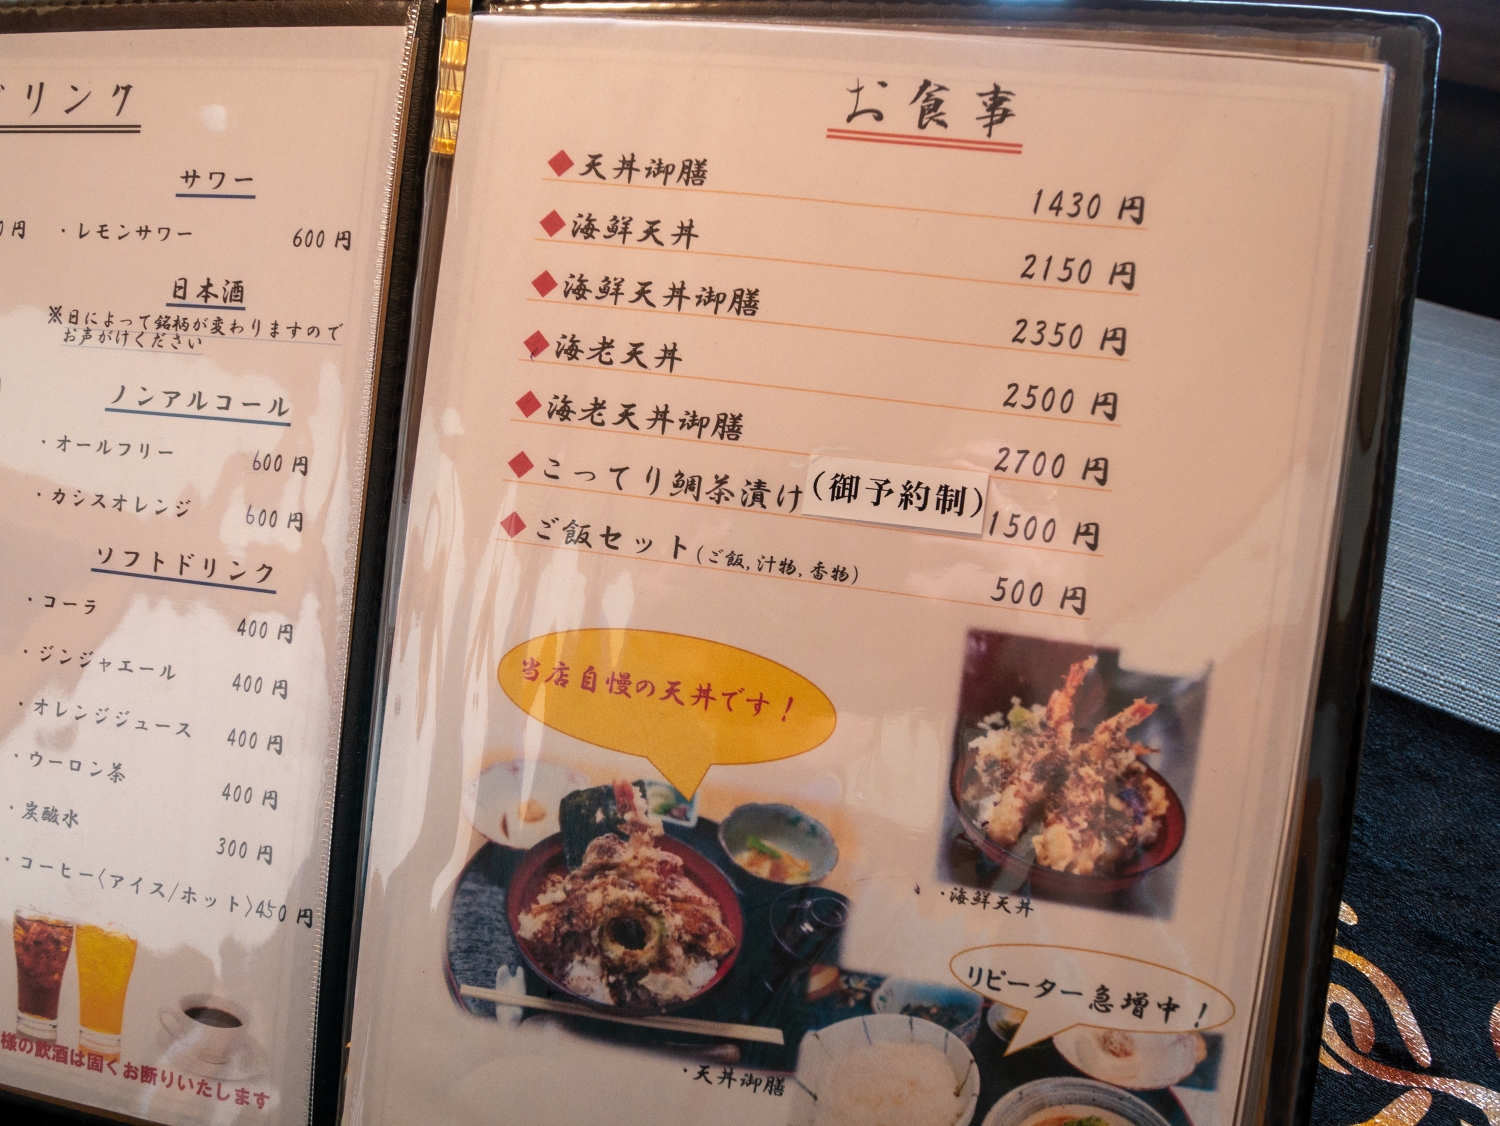 ドリンク
サワー
0円
・レモンサワー 600円
日本酒
※日によって銘柄が変わりますので
お声がけください
ノンアルコール
・オールフリー 600円
・カシスオレンジ 600円
ソフトドリンク
・コーラ 400円
・ジンジャエール 400円
・オレンジジュース 400円
・ウーロン茶 400円
・炭酸水 300円
・コーヒー〈アイス/ホット〉450円
様の飲酒は固くお断りいたします
お食事
◆天丼御膳 1430円
◆海鮮天丼 2150円
◆海鮮天丼御膳 2350円
◆海老天丼 2500円
◆海老天丼御膳 2700円
◆こってり鯛茶漬け(御予約制) 1500円
◆ご飯セット(ご飯,汁物,香物) 500円
当店自慢の天丼です!
・海鮮天丼
リピーター急増中!
・天丼御膳